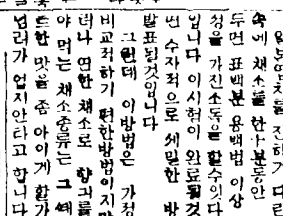 속에 채소를 한十분동안
두면 표백분 용백법 이상
성을 가진소독을 할수잇다
입니다 이시험이 완료될것
면 수자적으로 세밀한 방
발표될것이니다
그런데 이방법은 가정
비교적하기 편한방법이지만
러나 연한 채소로 향긔를
야 먹는 채소종류는 그
든한 맛을 좀 아이게 할가
념려가 업지안타고 합니다